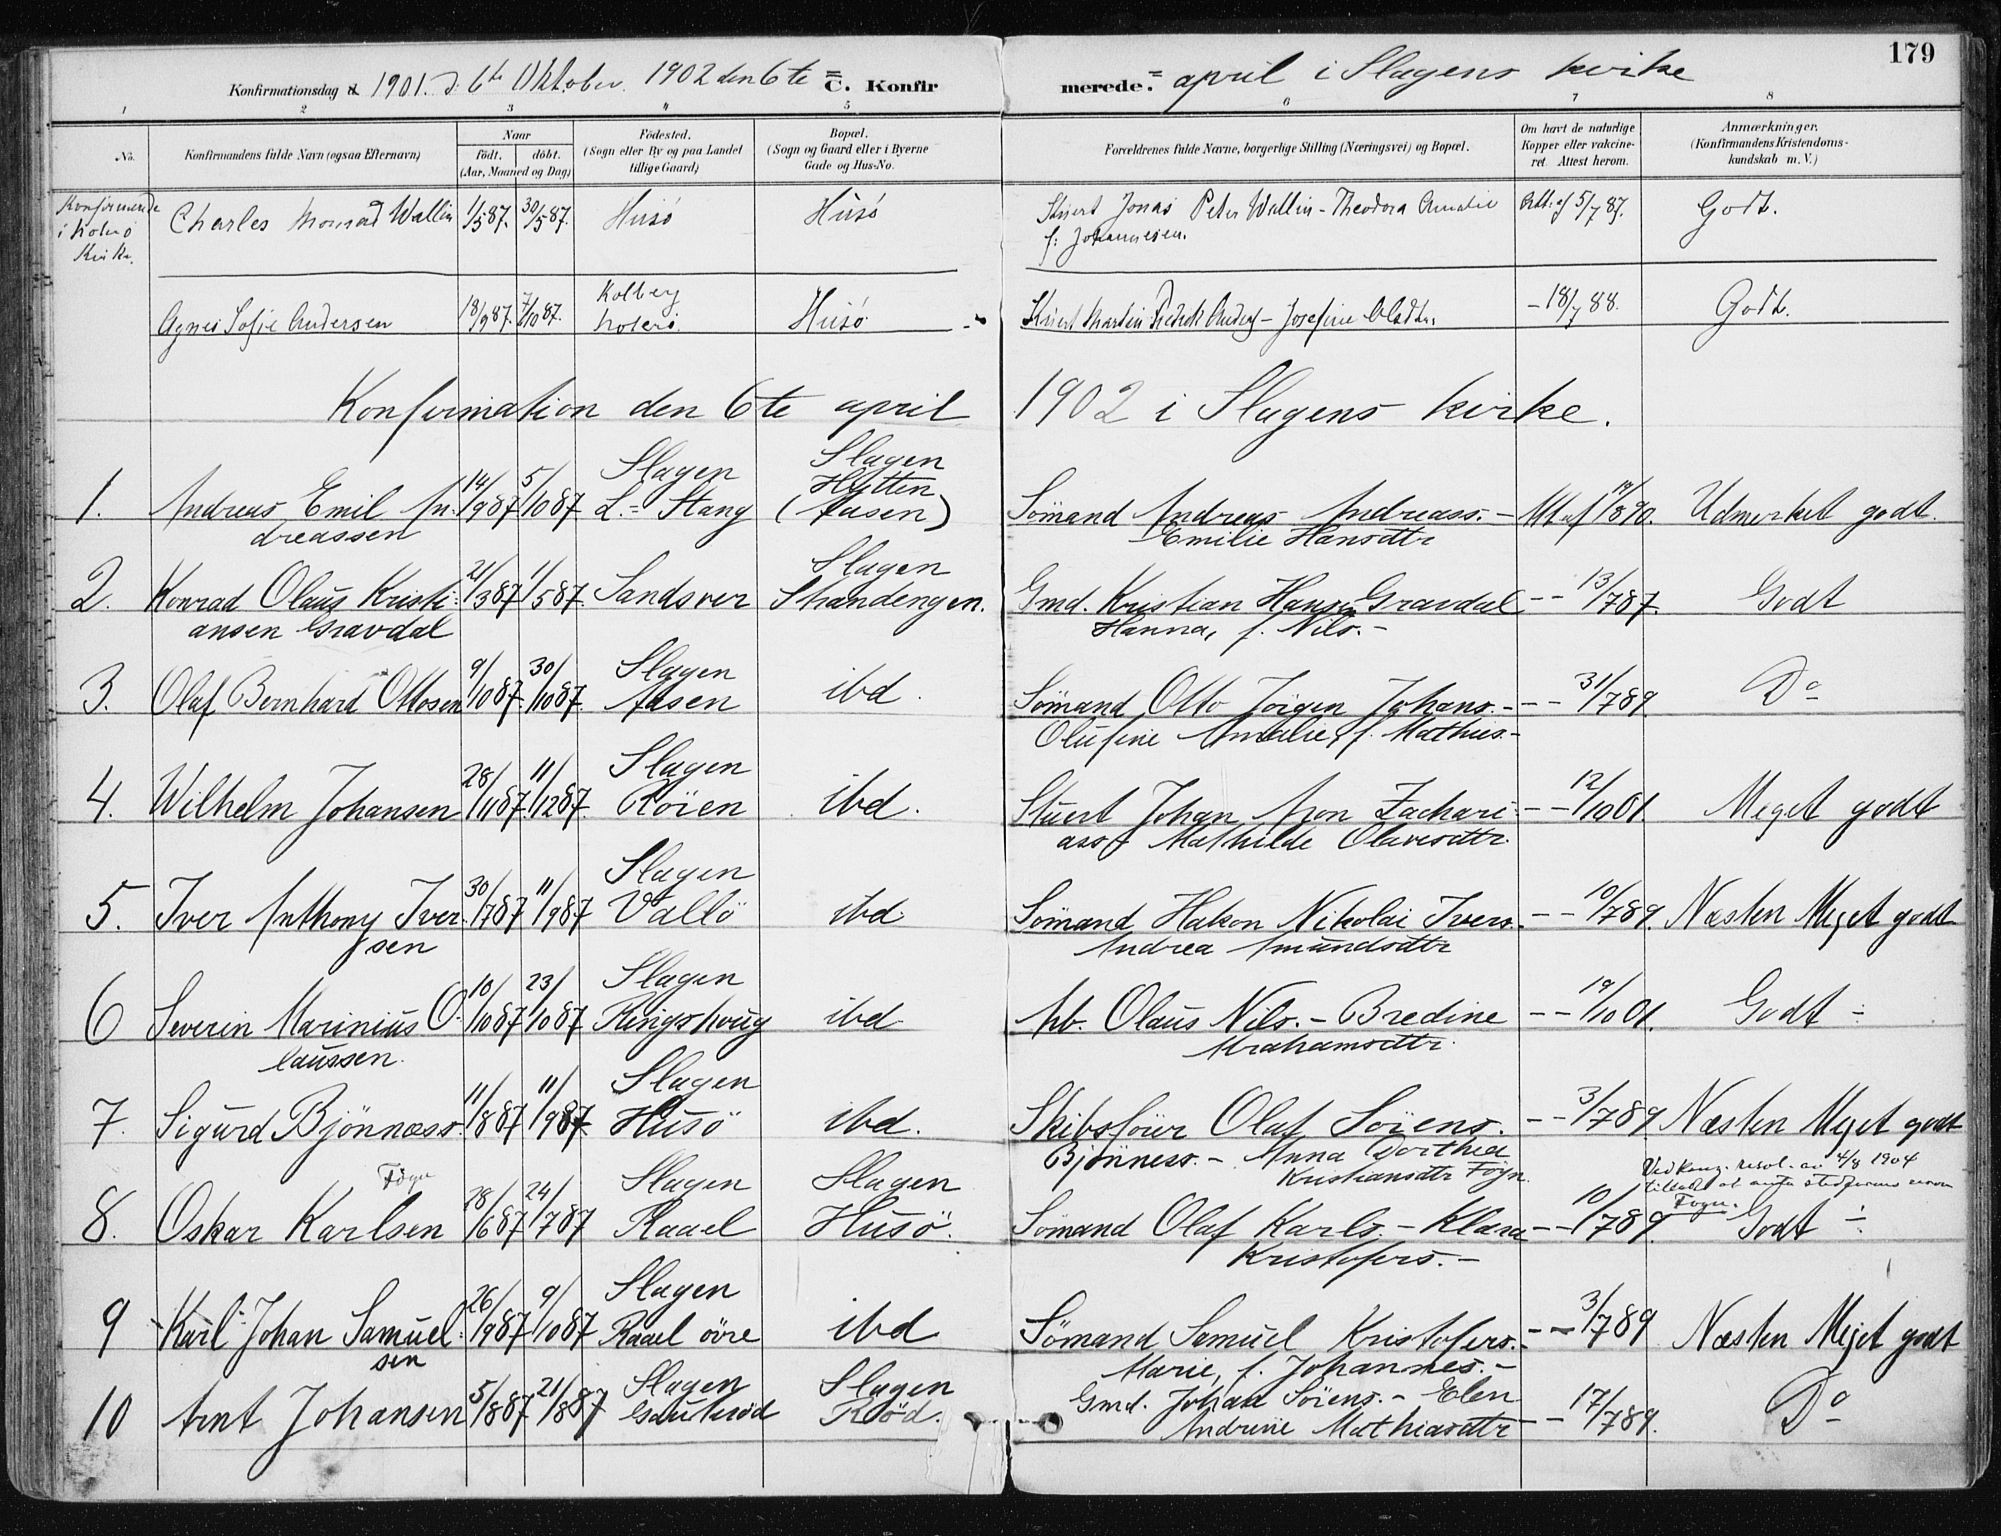 179
Konfirmationsdag d. 1901. d. 6te Oktober. 1902 den 6te C. Konfirmerede. april i Slagens kirke
1 2 3 4 5 6 7 8
No. Konfirmandens fulde Navn (ogsaa Efternavn) Naar födt. döbt. (Aar, Maaned og Dag) Födested. (Sogn eller By og paa Landet tillige Gaard) Bopæl. (Sogn og Gaard eller i Byerne Gade og Hus-No. Forældrenes fulde Navne, borgerlige Stilling (Næringsvei) og Bopæl. Om havt de naturlige Kopper eller vakcineret. Attest herom. Anmærkninger. (Konfirmandens Kristendomskundskab m. V.)
i Kirke. Charles Monrad Wallin 1/5 87. 30/5 87. Husö Husö Jonas Peter Wallin - Theodora Amalie f: Johannesen. Att. af 5/7 87. Godt.
Agnes Sofie Andersen 18/9 87. 7/10 87. Husö Martin - Josefine - 18/7 88. Godt.
Konfirmation den 6te april 1902 i Slagens kirke.
1. Andreas Emil Andreassen 14/9 87 5/10 87 Slagen L. Stang Slagen Hytten (Aasen) Sömand Andreas Andreass. - Emilie Hansdtr Att af /8 90. Udmerket godt.
2. Konrad Olaus Kristiansen Gravdal 21/3 87 1/5 87. Sandsver Slagen Strandengen. Gmd. Kristian Hans. Gravdal Hanna, f. Nils. - - - 13/7 87. Godt
3. Olaf Bernhard Ottosen 9/10 87. 30/10 87. Slagen Aasen ibd. Sömand Otto Jörgen Johans. - Olufine Amalie, f. Mathis. - - - 31/7 89. Do
4. Wilhelm Johansen 28/11 87. 11/12 87. Slagen Röien ibd. Stuert Johan Aron Zachariass Mathilde Olavesdtr. - - 12/10 01. Meget godt
5. Iver Anthony Iversen 30/7 87 11/9 87 Slagen Vallö ibd. Sömand Hakon Nikolai Ivers. Andrea Amundsdtr - - 10/7 89. Næsten Meget godt
6 Severin Marinius Olaussen. 10/10 87 23/10 87 Slagen Ringshoug ibd Arb. Olaus Nils. - Bredine Abrahamsdtr. - - 19/10 01. Godt ÷
7. Sigurd Bjönness. 11/8 87 11/9 87 Slagen Husö ibd. Skibsförer Olaf Sörens. Bjönness. - Anna Dorthea Kristiansdtr Föyn - - 3/7 89. Næsten Meget godt
8. Oskar Karlsen Föyn 28/6 87 24/7 87 Slagen Raael Slagen Husö. Sömand Olaf Karls. - Klara Kristofers. - - - 10/7 89. Ved kong. resol. av 4/8 1904 Föyn. Godt ÷
9 Karl Johan Samuelsen 26/9 87. 9/10 87 Slagen Raael övre ibd Sömand Samuel Kristofers. - Marie, f. Johannes. - - - 3/7 89 Næsten Meget godt
10 Arnt Johansen 5/8 87 21/8 87 Slagen Gauterød Slagen Röd. Gmd. Johan Sörens. - Elen Andrine Mathiasdtr - - 17/7 89. Do